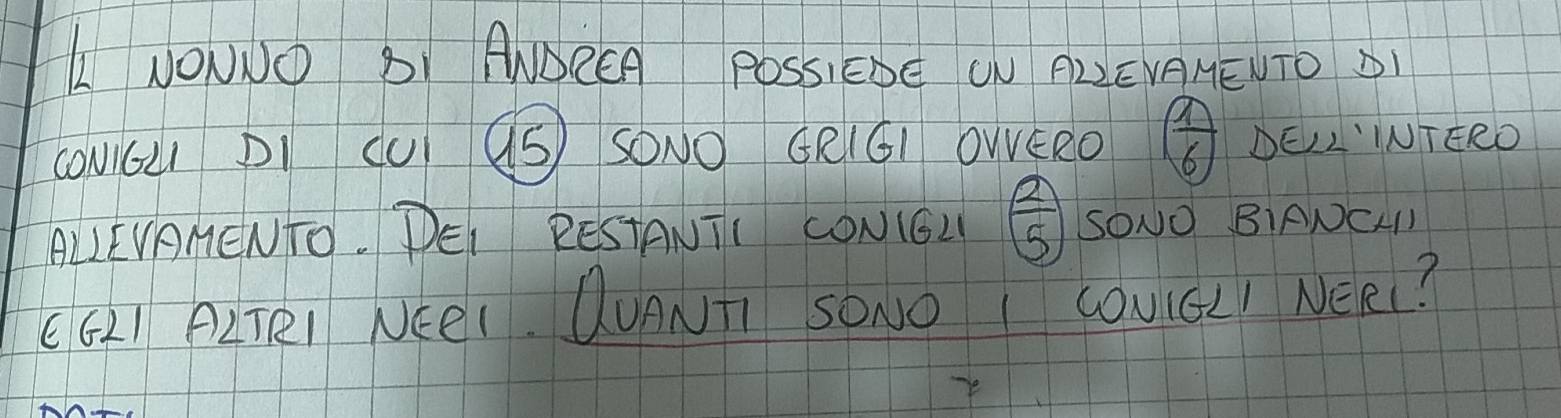 IL NONNO DI ANDREA POSSIEDE UN ALLEVAMENTO DI
CONIGLI DI CUI 15 SONO GRIGI OVVERO 1/6 DELL'INTERO
ALLEVAMENTO. DEI RESTANTI CONIGLI 2/5 SONO BIANCHI
E GLI ALTRI NERI. QUANTI SONO I CONIGLI NERI?
DATI